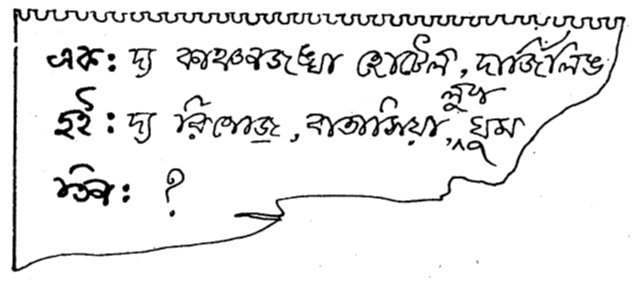 এক: দ্য কাঞ্চনজঙ্ঘা হোটেল, দার্জিলিঙ
দুই: দ্য রিপোজ, বাতাসিয়া লুপ, ঘুম
তিন: ?